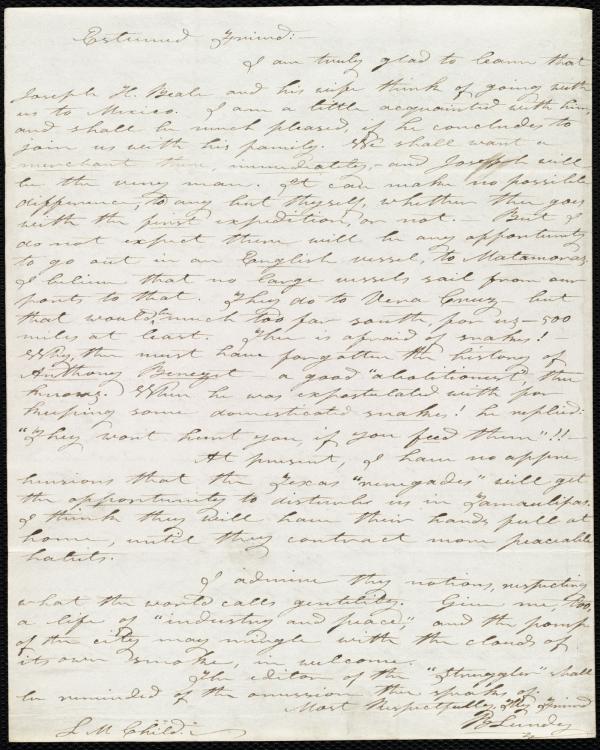 Esteemed Friend:—
I am truly glad to learn that
Joseph H. Beale and his wife think of going with
us to Mexico. I am a little acquainted with him,
and shall be much pleased, if he concludes to
join us with his family. We shall want a
merchant there, immediately,—and Joseph will
be the very man. It can make no possible
difference, to any but thyself, whether thee goes
with the first expedition, or not.— But I
do not expect there will be any opportunity
to go out in an English vessel, to Matamoras.
I believe that no large vessels sail from our
ports to that. They do to Vera Cruz—but
that would be much too far south, for us—500
miles at least. Thee is afraid of snakes!—
Why, thee must have forgotten the history of
Anthony Benezet—a good "abolitionist," thee
knows. When he was expostulated with for
keeping some domesticated snakes! he replied:
"They wont hurt you, if you feed them"!!—
At present, I have no appre-
hensions that the Texas "renegades" will get
the opportunity to disturb us in Tamaulipas.
I think they will have their hands full at
home, until they contract more peaceable
habits.
I admire thy notions, respecting
what the world calls gentility. Give me, too,
a life of "industry and peace," and the pomp
of the city may mingle with the clouds of
its own smoke, in welcome.
The editor of the "Struggler" shall
be reminded of the omission thee speaks of.
Most Respectfully, Thy Friend
L M Child. B Lundy